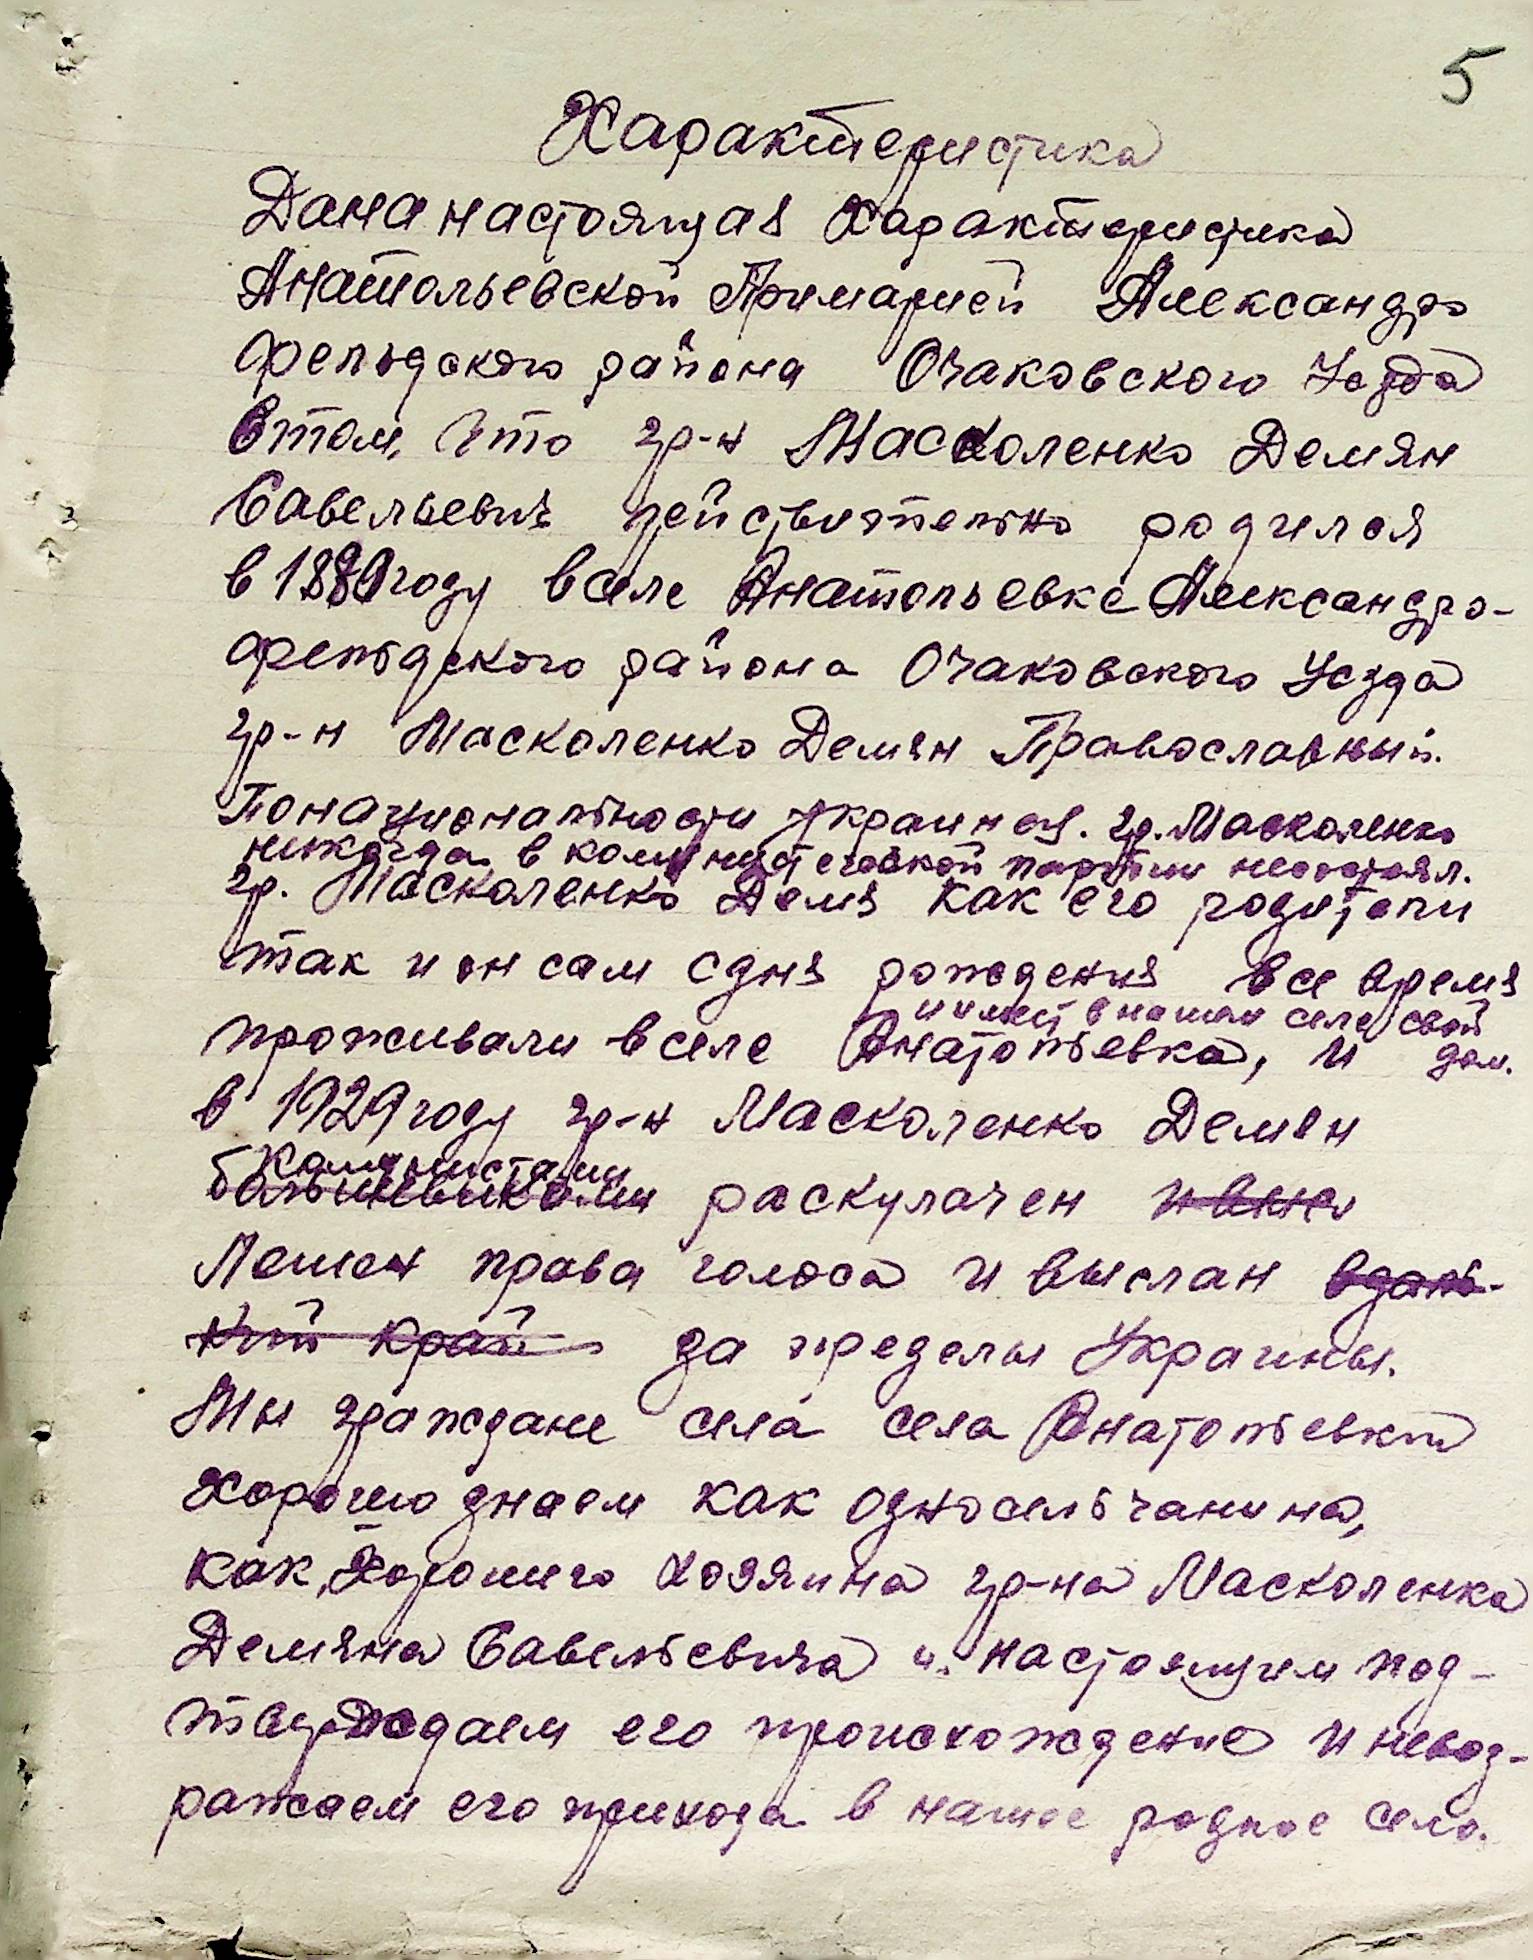 5
Характеристика
Дана настоящая Характеристика
Анатольевской Примарией Александро
фельдского района Очаковского Уезда
Втом, что гр-н Масколенко Демян
Савельевич действительно родился
в году вселе Анатольевке Александро-
фельдского района Очаковского Уезда
гр-н Масколенко Демян Православный.
Понациональности Украинец. гр. Масколенко
никогда в комунистической партии несостоял.
гр. Масколенко Демя как его родители
так и он сам сдня рождения все время
и имеет в нашем селе свой
проживали вселе Анатольевка, и дом.
в 1929 году гр-н Масколенко Демян
Комунистами
большевиками раскулачен
Лешен права голоса и выслан вдаль-
ний край за пределы Украины.
Мы граждане села села Анатольевки
Хорошо знаем как односельчанина,
как, Хорошего хозяина гр-на Масколенка
Демяна Савельевича и настоящим под-
тверждаем его происхождение и невоз-
ражаем его прихода в нашее родное село.